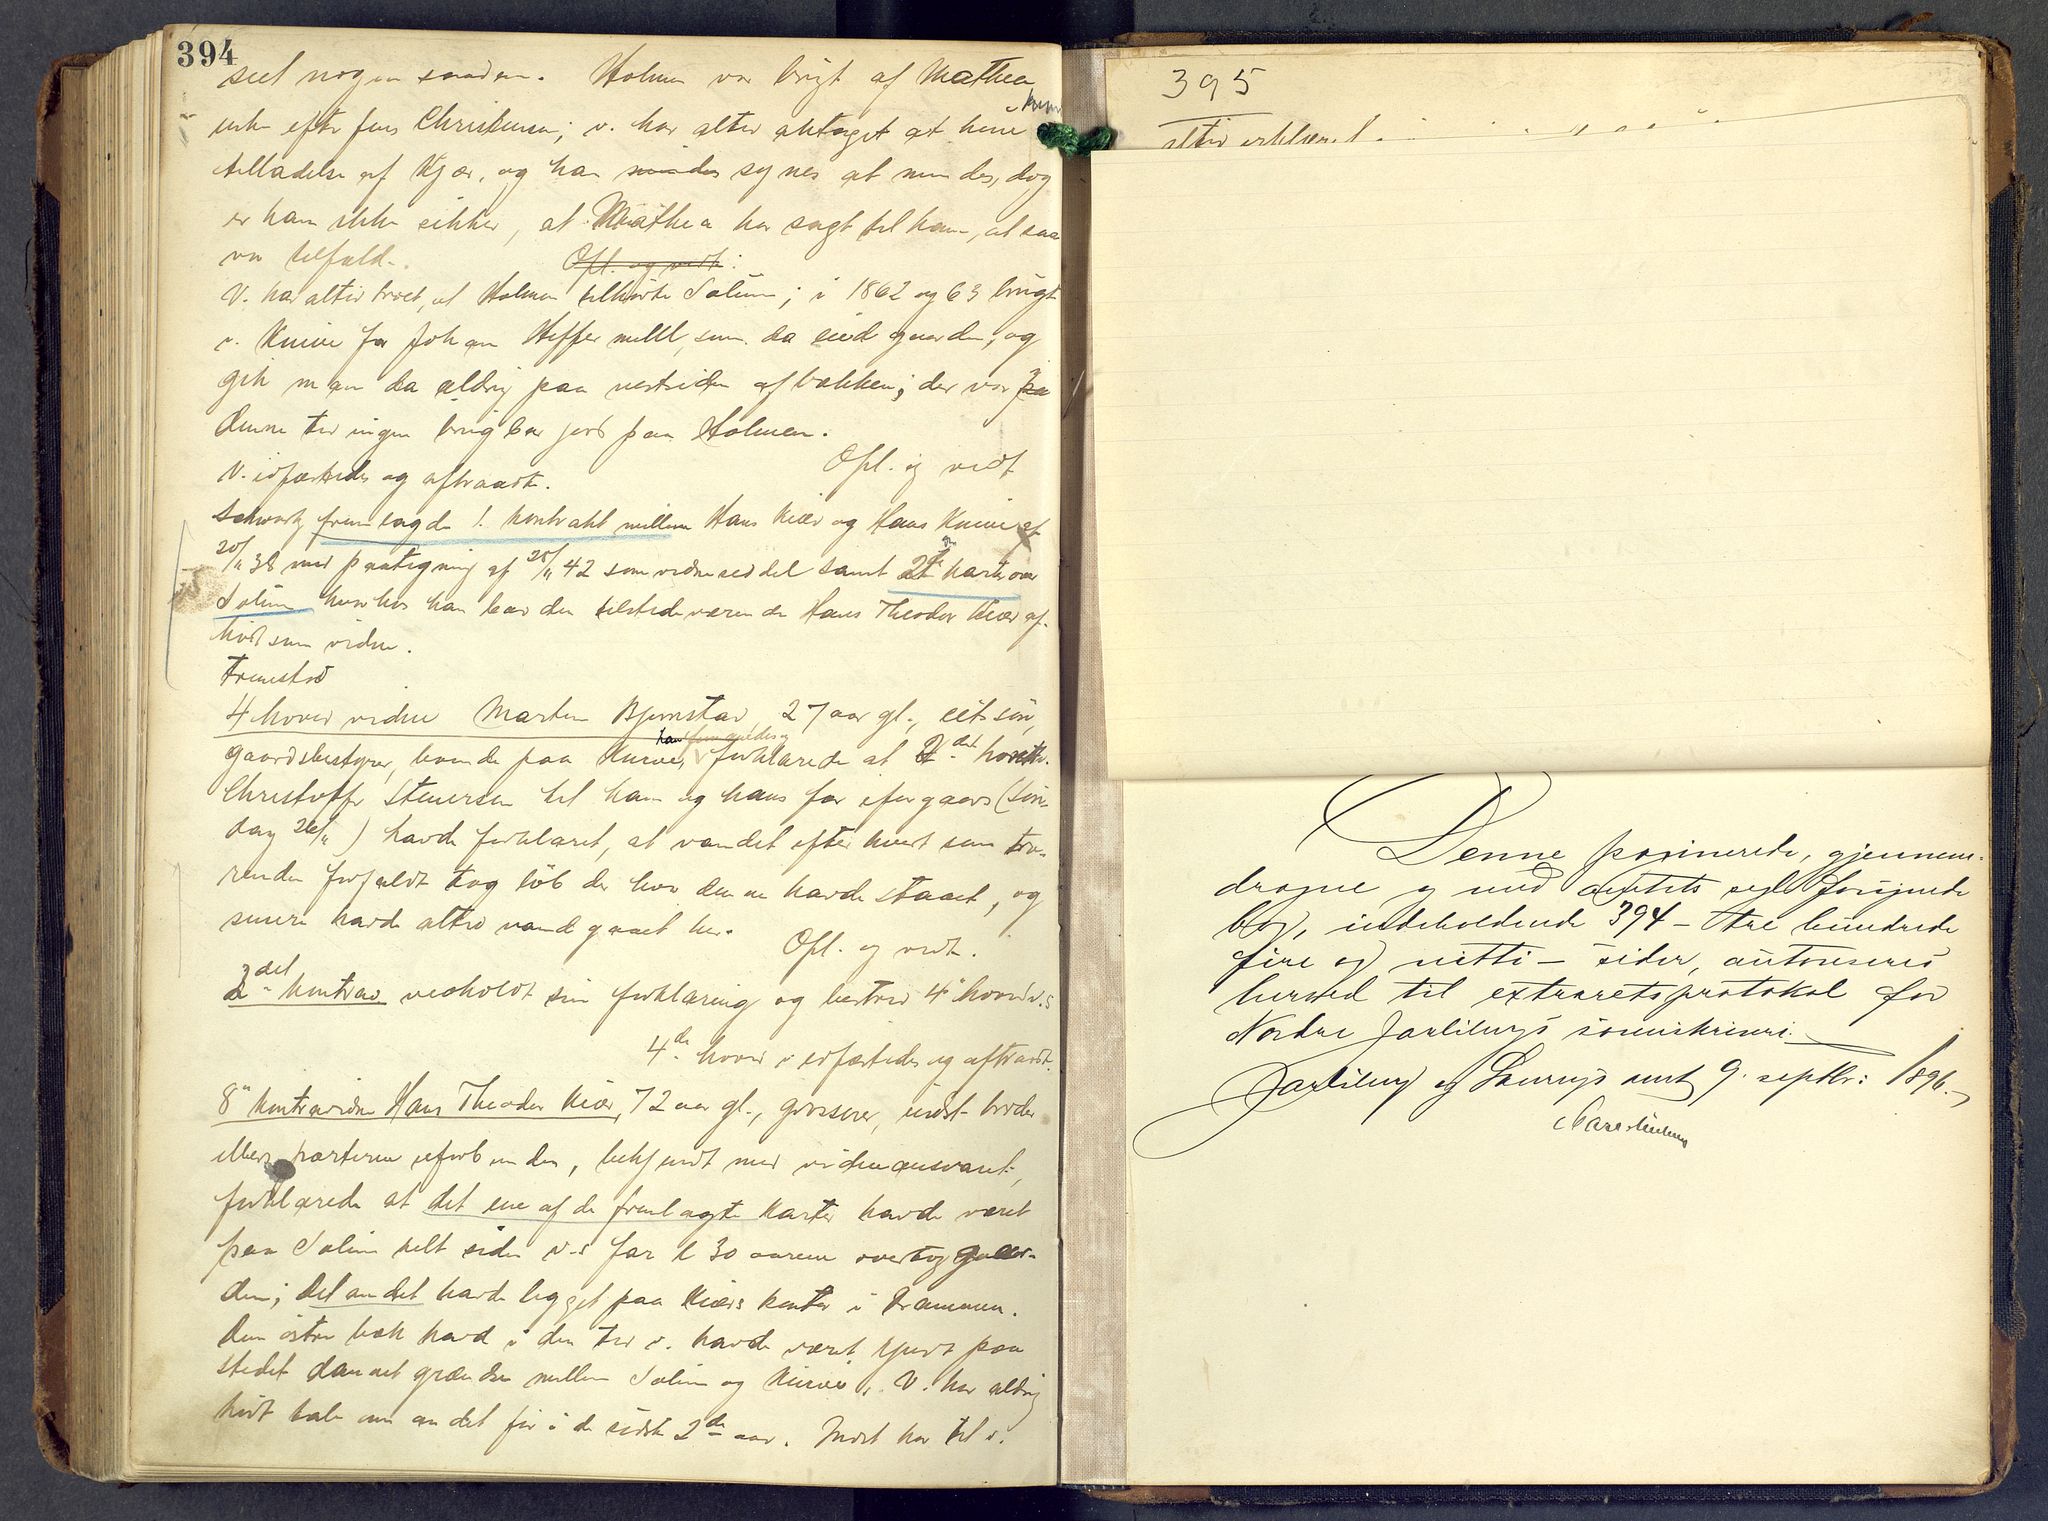 394
seet nogen saadan. Holmen var brugt af Mathea
enke efter Jens Christensen; v. har altid antaget at hun
tilladelse af Kjær, og han mindes synes at mindes, dog
er han ikke sikker, at Mathea har sagt til ham, at saa
var tilfælde. Opl. og vedt.
V. har altid troet, at Holmen tilhørte Solum; i 1862 og 63 brugt
v. Knive for Johan Heffermehl, som da eied gaarden, og
gik man da aldrig paa vestsiden af bækken; der var paa
denne tid ingen brugbar jord paa Holmen.
Opl. og vedt
V. edfæstedes og aftraadte.
Schwartz fremlagde 1. kontrakt mellem Hans Kiær og Hans Knive af
20/11 38 med paategning af 25/11 42 som vidneseddel samt 2 karter over
Solum hvorhos han bad den tilstedeværende Hans Theodor Kiær af-
hørt som vidne.
Fremstod
4 hovedvidne Marten Bjørnstad, 27 aar gl., eits søn,
gaardsbestyrer, boende paa Knive, forklarede at 2det kontrav.
Christoffer Steversen til ham og hans far iforgaars (søn-
dag 26/11) havde forklaret, at vandet efter hvert som tøm-
renden forfaldt tog løb der hvor denne havde staaet, og
senere havde altid vand gaaet her.
Opl. og vedt.
2det kontrav vedholdt sin forklaring og bestred 4 hovedv.s
4de hovedv. edfæstedes og aftraadt.
8 kontravidne Hans Theodor Kiær, 72 aar gl., grosserer, indst. broder
ellers parterne uforbunden, bekjendt med vidneansvaret,
forklarede at det ene af de fremlagte karter havde været
paa Solum helt siden v.s far i 30 aarene overtog gaar-
den; det andet havde ligget paa Kiærs kontor i Drammen.
Den østre bæk havd i den tid v. havde været kjendt paa
stedet dannet grændse mellem Solum og Knive. V. har aldrig
hørt tale om andet før i de sidste 2de aar. Indst har til v.
395
altid erklæret
Denne paginerede, gjennem-
dragne og med amtets segl forsynede
bog, indeholdende 394 – tre hundrede
fire og nitti – sider, autoriseres
herved til extraretsprotokol for
Nordre Jarlsbergs sorenskriveri.
Jarlsberg og Laurvigs amt 9. septbr: 1896.